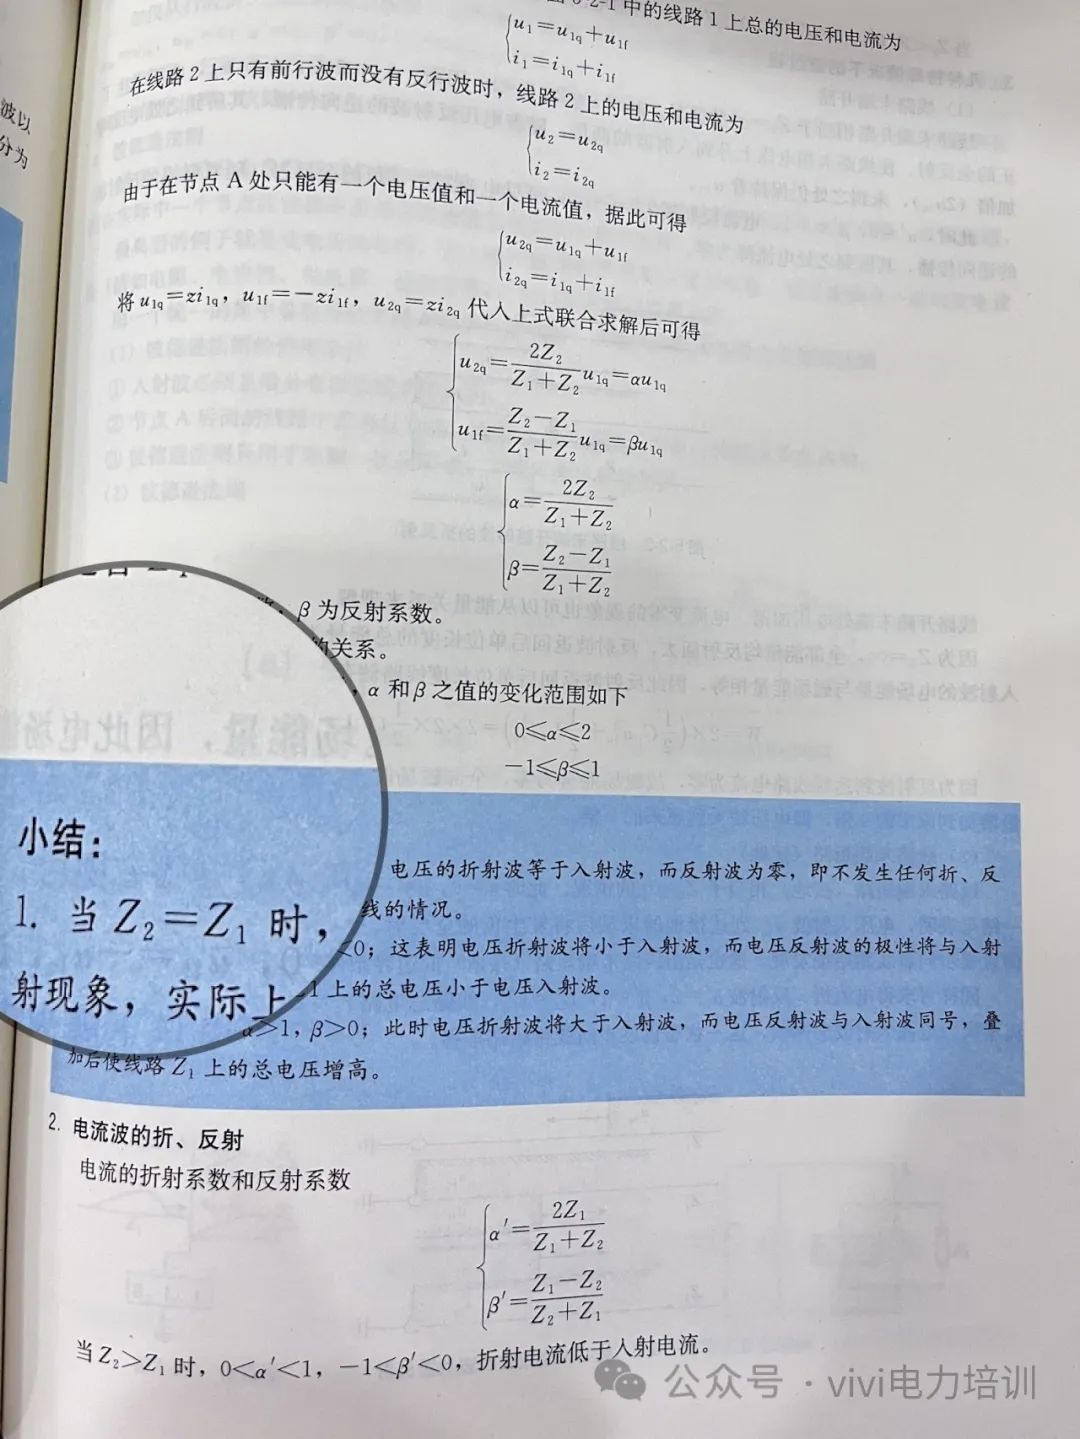 波以
分为
中的线路1上总的电压和电流为
u₁=u₁q+u₁f
i₁=i₁q+i₁f
在线路2上只有前行波而没有反行波时，线路2上的电压和电流为
u₂=u₂q
i₂=i₂q
由于在节点A处只能有一个电压值和一个电流值，据此可得
u₂q=u₁q+u₁f
i₂q=i₁q+i₁f
将u₁q=zi₁q，u₁f=-zi₁f，u₂q=zi₂q代入上式联合求解后可得
u₂q=2Z₂/(Z₁+Z₂)u₁q=αu₁q
u₁f=(Z₂-Z₁)/(Z₁+Z₂)u₁q=βu₁q
α=2Z₂/(Z₁+Z₂)
β=(Z₂-Z₁)/(Z₁+Z₂)
β为反射系数。
的关系。
α和β之值的变化范围如下
0≤α≤2
-1≤β≤1
小结：
1. 当Z₂=Z₁时，
电压的折射波等于入射波，而反射波为零，即不发生任何折、反
射现象，实际上
线的情况。
<0；这表明电压折射波将小于入射波，而电压反射波的极性将与入射
上的总电压小于电压入射波。
α>1，β>0；此时电压折射波将大于入射波，而电压反射波与入射波同号，叠
加后使线路Z₁上的总电压增高。
2. 电流波的折、反射
电流的折射系数和反射系数
α′=2Z₁/(Z₁+Z₂)
β′=(Z₁-Z₂)/(Z₂+Z₁)
当Z₂>Z₁时，0<α′<1，-1<β′<0，折射电流低于入射电流。
公众号·vivi电力培训